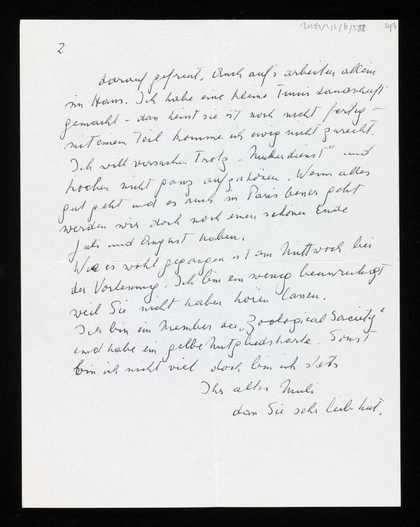 2
darauf gefreut. Auch aufs arbeiten allein
im Haus. Ich habe eine kleine Tunis Landschaft
gemacht – das heisst sie ist noch nicht fertig –
mit einem Teil komme ich ewig nicht zurecht.
Ich will versuchen trotz „ " und
kochen nicht ganz aufzuhören. Wenn alles
gut geht und es auch in Paris besser geht
werden wir doch noch einen schönen Ende
Juli und August haben.
Wie es wohl gegangen ist am Mittwoch bei
der Vorlesung. Ich bin ein wenig beunruhigt
weil Sie nicht haben hören lassen.
Ich bin ein Member der „Zoological Society"
und habe ein gelbe Mitgliedskarte. Sonst
bin ich nicht viel doch bin ich stets
Ihr altes Muli
das Sie sehr lieb hat.